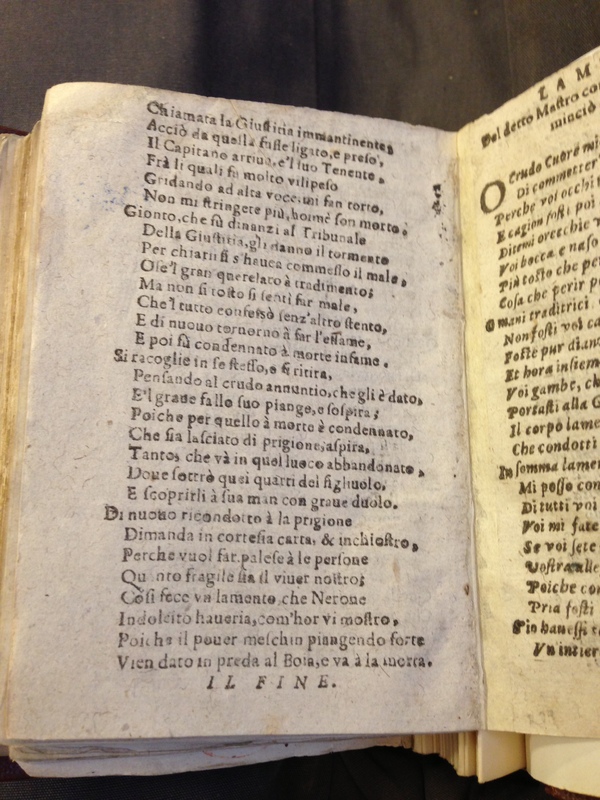 Chiamata la Giuſtitia immantinente,
Acciò da quella fuſſe ligato, e preſo,
Il Capitano arriuò, e'l ſuo Tenente,
Frà li quali fù molto vilipeſo
Gridando ad alta voce, mi fan torto,
Non mi ſtringete più, hoimè ſon morto.
Gionto, che fù dinanzi al Tribunale
Della Giuſtitia, gli danno il tormento
Per chiarir ſi s'hauea commeſſo il male,
O ſe'l gran querelato à tradimento;
Ma non ſi toſto ſi ſentì far male,
Che'l tutto confeſsò ſenz'altro ſtento,
E di nuouo tornorno à far l'eſſame,
E poi fù condennato à morte infame.
Si racoglie in ſe ſteſſo, e ſi ritira,
Penſando al crudo annuntio, che gli è dato,
E'l graue fallo ſuo piange, e ſoſpira;
Poiche per quello à morte è condennato,
Che ſia laſciato di prigione, aſpira,
Tanto, che và in quel luoco abbandonato,
Doue ſotrrò quei quarti del figliuolo,
E ſcoprirli à ſua man con graue duolo.
Di nuouo ricondotto à la prigione
Dimanda in corteſia carta, & inchioſtro,
Perche vuol far paleſe à le perſone
Quanto fragile ſia il viuer noſtro;
Coſi fece vn lamento che Nerone
Indolcito haueria, com'hor vi moſtro,
Poiche il pouer meſchin piangendo forte
Vien dato in preda al Boia, e va à la morte.
IL FINE.
LAM
Del detto Maſtro co
minciò
O Crudo Cuore mi
Di commetter
Perche voi occhi
E cagion foſti poi
Ditemi orecchie v
Voi bocca, e naſo
Più toſto che pe
Coſa che perir p
O mani traditrici
Non foſti voi ca
Foſte pur dian
Et hora inſiem
Voi gambe, ch
Portaſti alla G
Il corpo lame
Che condotti
In ſomma lamen
Mi poſſo con
Di tutti voi
Voi mi fate
Se voi ſete
Voſtra alle
Poiche con
Pria foſti
S'io haueſſi t
Vn'intier